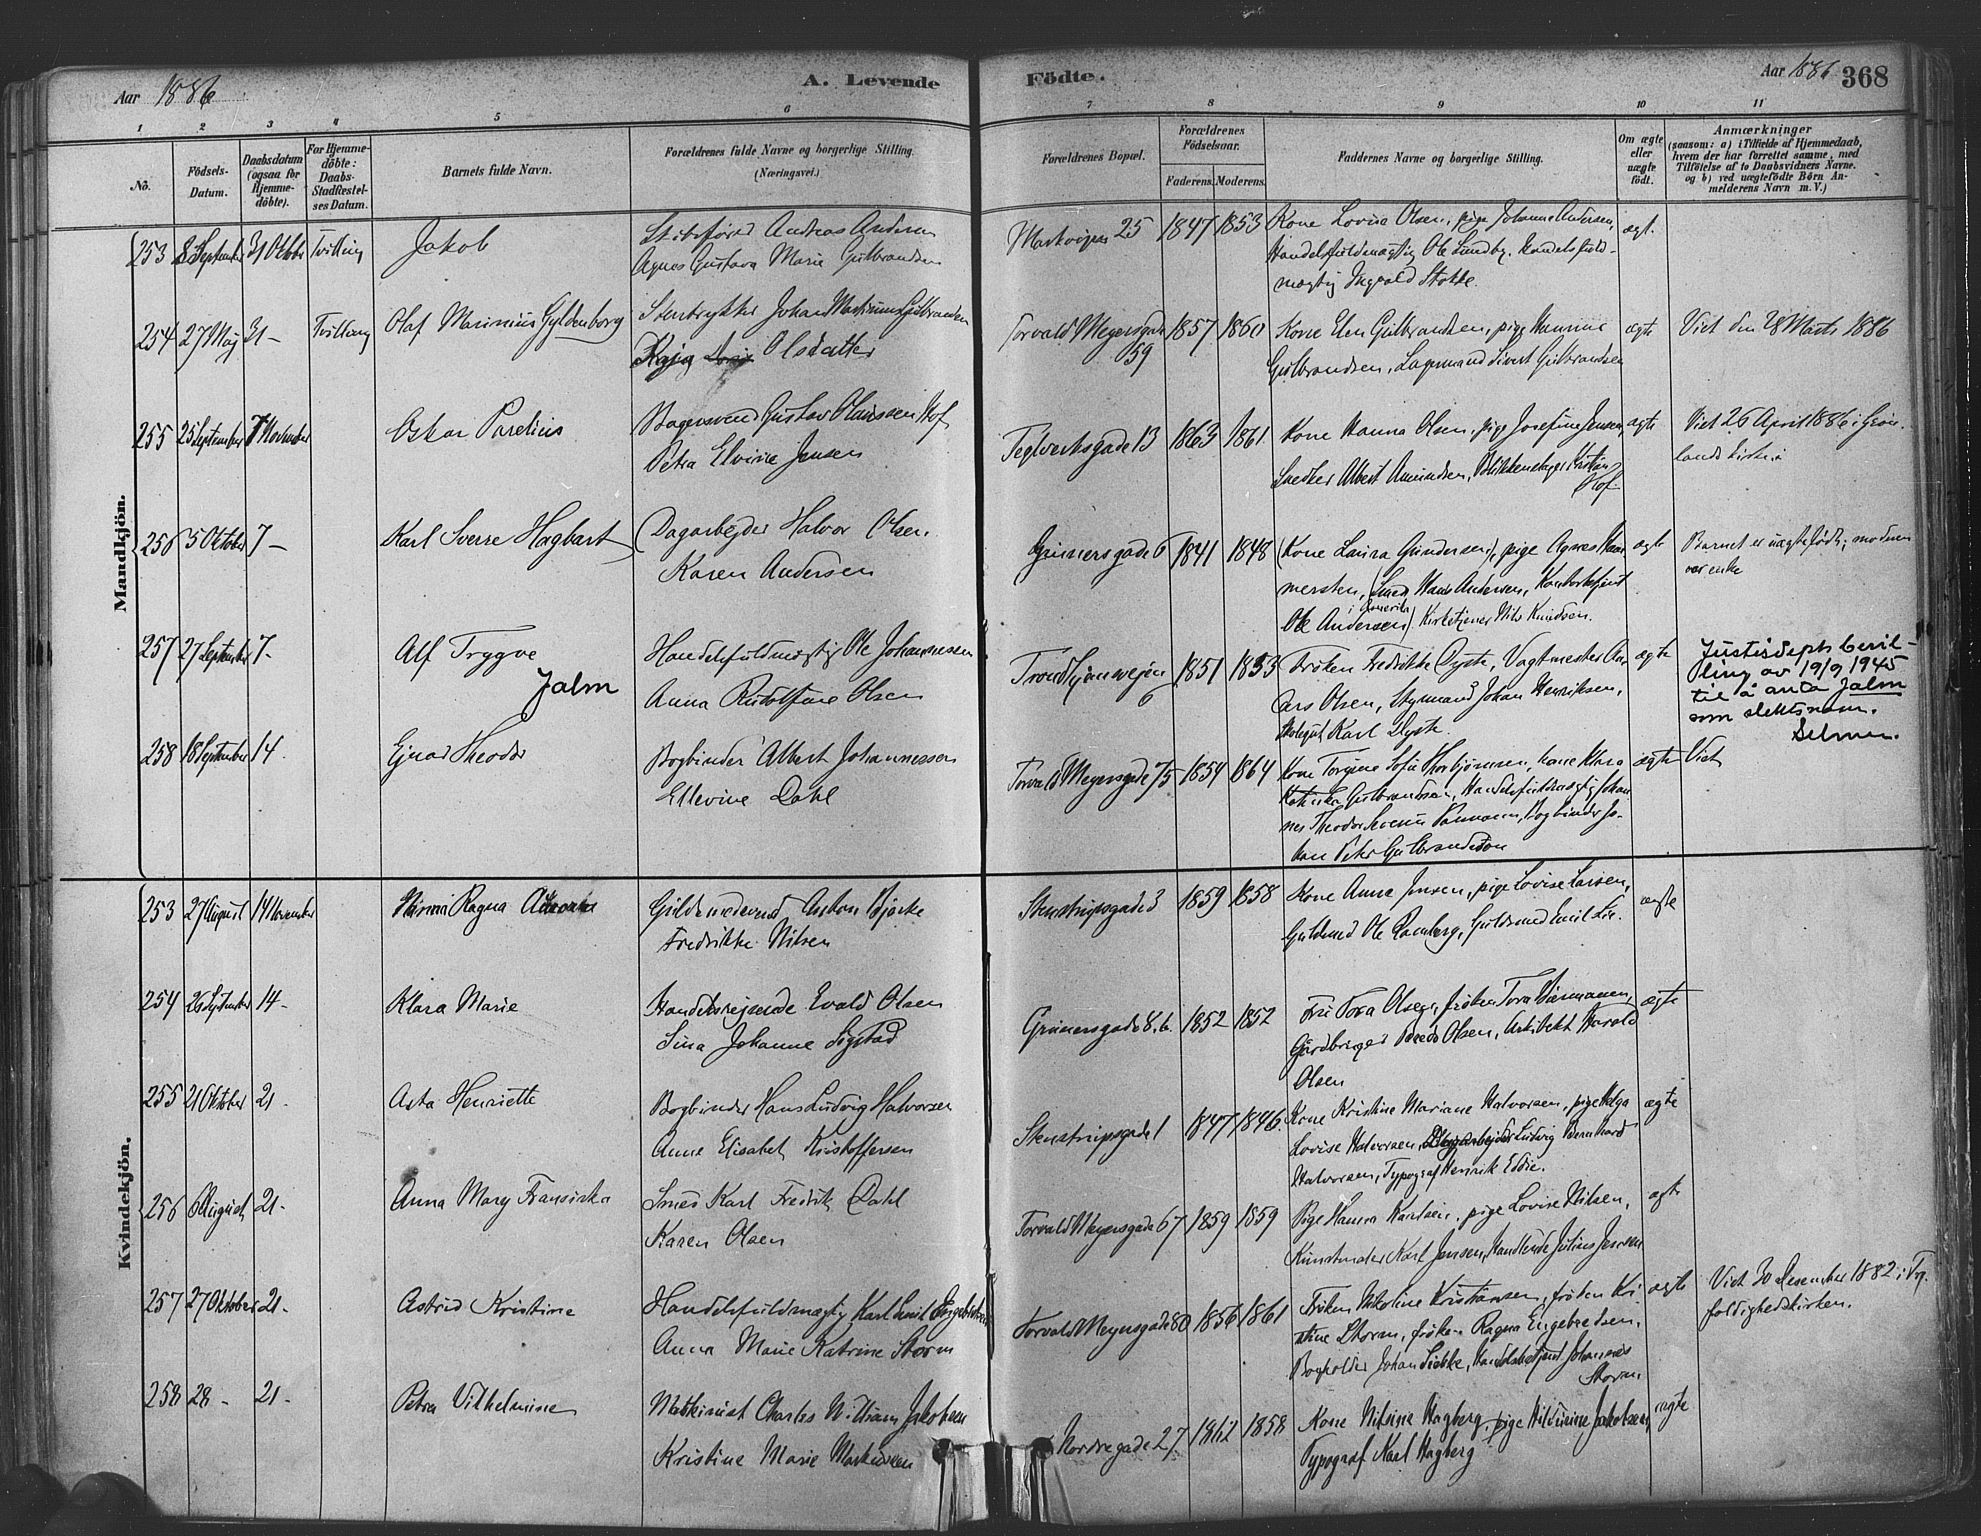 Aar 1886
A. Levende
Födte.
Aar 1886 368
1 2 3 4 5 6 7 8 9 10 11
No.
Födsels-
Datum.
Daabsdatum
(ogsaa for
Hjemme-
döbte).
For Hjemme-
döbte:
Daabs-
Stadfæstel-
ses Datum.
Barnets fulde Navn.
Forældrenes fulde Navne og borgerlige Stilling.
(Næringsvei.)
Forældrenes Bopæl.
Forældrenes
Födselsaar.
Faderens. Moderens.
Faddernes Navne og borgerlige Stilling.
Om ægte
eller
uægte
födt.
Anmærkninger
(saasom: a) i Tilfælde af Hjemmedaab,
hvem der har forrettet samme, med
Tilföielse af to Daabsvidners Navne.
og b) ved uægtefödte Börn An-
melderens Navn m. V.)
Mandkjön.
253 8 September 31 Oktober Tvilling Jakob
Andreas Andersen
Agnes Gustava Marie Gulbrandsen
Markvejen 25 1847 1853
Kone Lovisa Olsen, pige Johanne Andersen,
Handelsfuldmægtig Ole Lundby, Handelsfuld-
mægtig Ingvald Stokke.
ægt.
254 27 Maj 31 - Tvilling Olaf Marinius Gyldenborg
Stentrykker Johan Gulbrandsen
Kaja Olsdatter
Torvald Meyersgade
59
1857 1860
Kone Elen Gulbrandsen, pige Hanna
Gulbrandsen, Sivert Gulbrandsen
ægte
Viet den 28 Marts 1886
255 25 September 7 November Oskar Parelius
Bagersvend Gustav Olaussen Hof
Petra Elvine Jensen
Teglverksgade 13 1863 1861.
Kone Hanna Olsen, pige Josefine Jensen,
Snedker Albert Amundsen, Kristian
Hof.
ægte
Viet 26 April 1886 i Grön-
lands kirke.
256 5 Oktober 7 - Karl Sverre Hagbart
(Dagarbejder Halvor Olsen.
Karen Andersen
Grünersgade 6 1841 1848
(Kone Laura Gundersen), pige Agnes Ham-
mersten, (Smed Hans Andersen, Kontorbetjent
i Amerika
Ole Andersen) Kirketjener Nils Knudsen.
ægte
Barnet er uægtefödt; moderen
var enke
257 27 September 7 - Alf Trygve
Jalm
Handelsfuldmægtig Ole Johannessen
Anna Rudolfine Olsen
Trondhjemsvejen
6
1851 1853
Fröken Fredrikke Dyste, Vagtmester An-
ders Olsen, Styrmand Johan Henriksen,
Karl Dyste.
ægte
Justisdepts bevil-
ling av 19/9 1945
til å anta Jalm
som slektsnavn.
Selmer.
258 18 September 14. Ejnar Theodor
Bogbinder Albert Johannessen
Ellevine Dahl
Torvald Meyersgade 75 1854 1864
Kone Torgine Sofie Thorbjørnsen, kone Klara
Gulbrandsen, Handelsfuldmægtig Johan-
nes Theodor Bogbinder Jo-
han Peter Gulbrandsen
ægte Viet
Kvindekjön.
253 27 August 14 November Ragna
Guldsmedsvend Anton Bjerke
Fredrikke Nilsen
Stenstrupsgade 3 1859 1858
Kone Anna Jensen, pige Lovise Larsen,
Guldsmed Ole Ramberg, Guldsmed Emil Lie.
ægte
254 26 September 14 - Klara Marie
Handelsrejsende Evald Olsen
Sina Johanne Sigstad
Grünersgade 8.b. 1852 1852
Fru Tora Olsen, fröken Tora
Gårdbruger Olsen, Arkitekt Harald
Olsen
ægte
255 21 Oktober 21 - Asta Henriette
Bogbinder Hans Ludvig Halvorsen
Anne Elisabet Kristoffersen
Stenstrupsgade 1 1847 1846.
Kone Kristine Mariane Halvorsen, pige Helga
Lovise Halvorsen, Ludvig Bernhard
Halvorsen, Typograf Henrik Eddie.
ægte
256 6 August 21 - Anna Mary Fransiska
Smed Karl Fredrik Dahl
Karen Olsen
Torvald Meyersgade 67 1859 1859
Pige Hanna Karlsen, pige Lovise Nilsen,
Kunstmaler Karl Jensen, Handlende Julius Jensen
ægte
257 27 Oktober 21 - Astrid Kristine
Handelsfuldmægtig Karl Emil Engebretsen
Anna Marie Katrine Storm
Torvald Meyersgade 80 1856 1861
Fröken Nikoline Kristiansen, fröken Kri-
stine Storm, fröken Ragna Engebretsen,
Bogholder Johan Handelsbetjent Johannes
Storm
ægte
Viet 30 Desember 1882 i Tre-
foldighedskirken.
258 28 - 21 - Petra Vilhelmine
Maskinist Charles William Jakobsen
Kristine Marie Markussen
Nordregade 27 1862 1858
Kone Nilsine Hagberg, pige Jakobsen,
Typograf Karl Hagberg
ægte